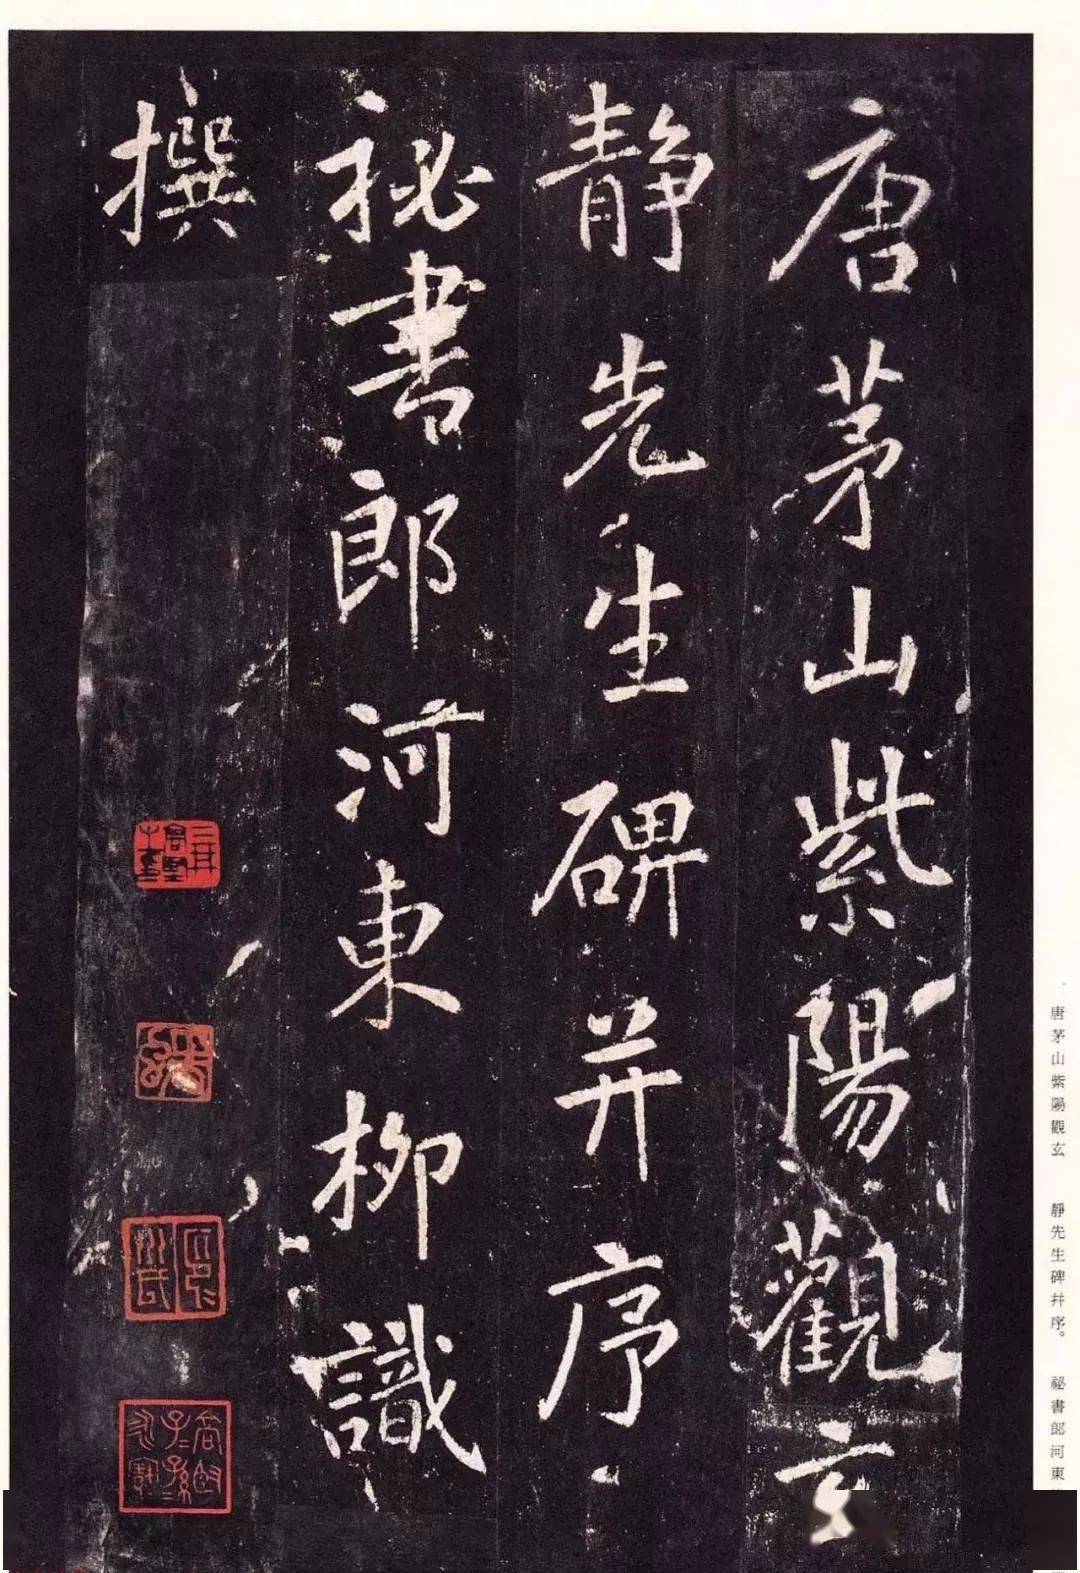 唐茅山紫陽觀玄
靜先生碑并序
祕書郎河東柳識
撰
唐茅山紫陽觀玄 靜先生碑并序。 祕書郎河東